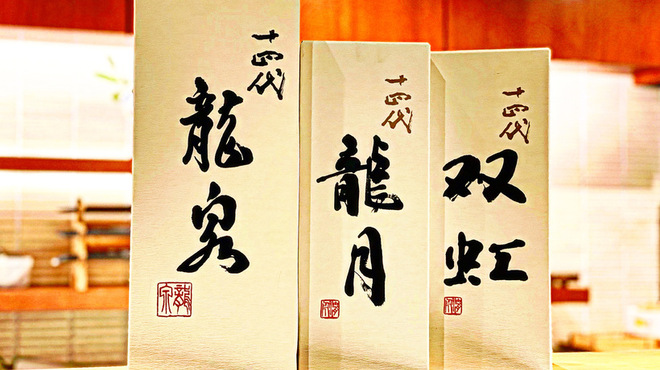 十四代
龍泉
十四代
龍月
十四代
双虹